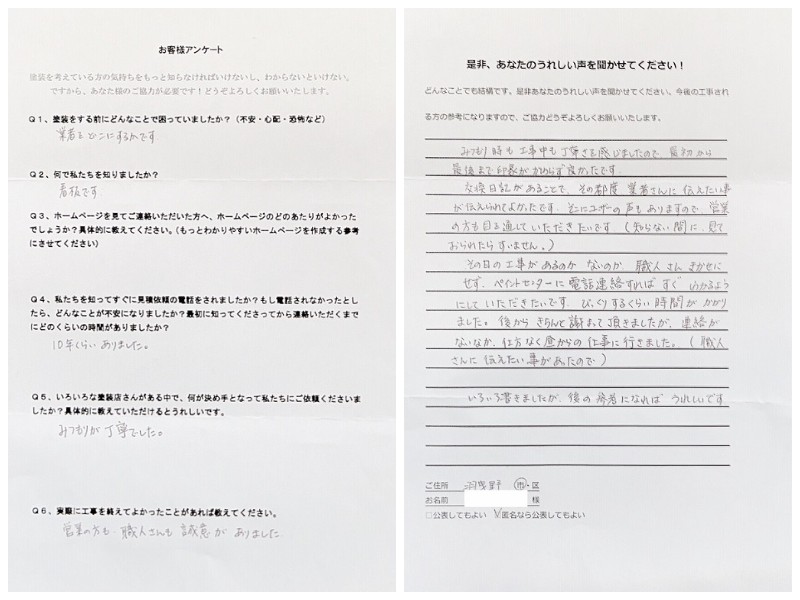 お客様アンケート
塗装を考えている方の気持ちをもっと知らなければいけないし、わからないといけない。
ですから、あなた様のご協力が必要です！どうぞよろしくお願いいたします。
Ｑ１、塗装をする前にどんなことで困っていましたか？（不安・心配・恐怖など）
業者をどこにするかです
Ｑ２、何で私たちを知りましたか？
看板です
Ｑ３、ホームページを見てご連絡いただいた方へ、ホームページのどのあたりがよかった
でしょうか？具体的に教えてください。（もっとわかりやすいホームページを作成する参考
にさせてください）
Ｑ４、私たちを知ってすぐに見積依頼の電話をされましたか？もし電話されなかったとし
たら、どんなことが不安になりましたか？最初に知ってくださってから連絡いただくまで
にどのくらいの時間がありましたか？
10年くらいありました。
Ｑ５、いろいろな塗装店さんがある中で、何が決め手となって私たちにご依頼くださいま
したか？具体的に教えていただけるとうれしいです。
みつもりが丁寧でした。
Ｑ６、実際に工事を終えてよかったことがあれば教えてください。
営業の方も、職人さんも誠意がありました
是非、あなたのうれしい声を聞かせてください！
どんなことでも結構です。是非あなたのうれしい声を聞かせてください。今後の工事され
る方の参考になりますので、ご協力どうぞよろしくお願いいたします。
みつもり時も工事中も丁寧さを感じましたので、最初から
最後まで印象がかわらず良かったです。
交換日記があることで、その都度業者さんに伝えたい事
が伝えられてよかったです。そこにユーザーの声もありますので、営業
の方も目を通していただきたいです（知らない間に、見て
おられたらすいません。）
その日の工事があるのかないのか、職人さんまかせに
せず、ペイントセンターに電話連絡すればすぐわかるよう
にしていただきたいです。びっくりするくらい時間がかかり
ました。後からきちんと謝って頂きましたが、連絡が
ないなか、仕方なく昼からの仕事に行きました。（職人
さんに伝えたい事があったので）
いろいろ書きましたが、後の参考になればうれしいです
ご住所 羽曳野 市・区
お名前 様
□公表してもよい ☑匿名なら公表してもよい